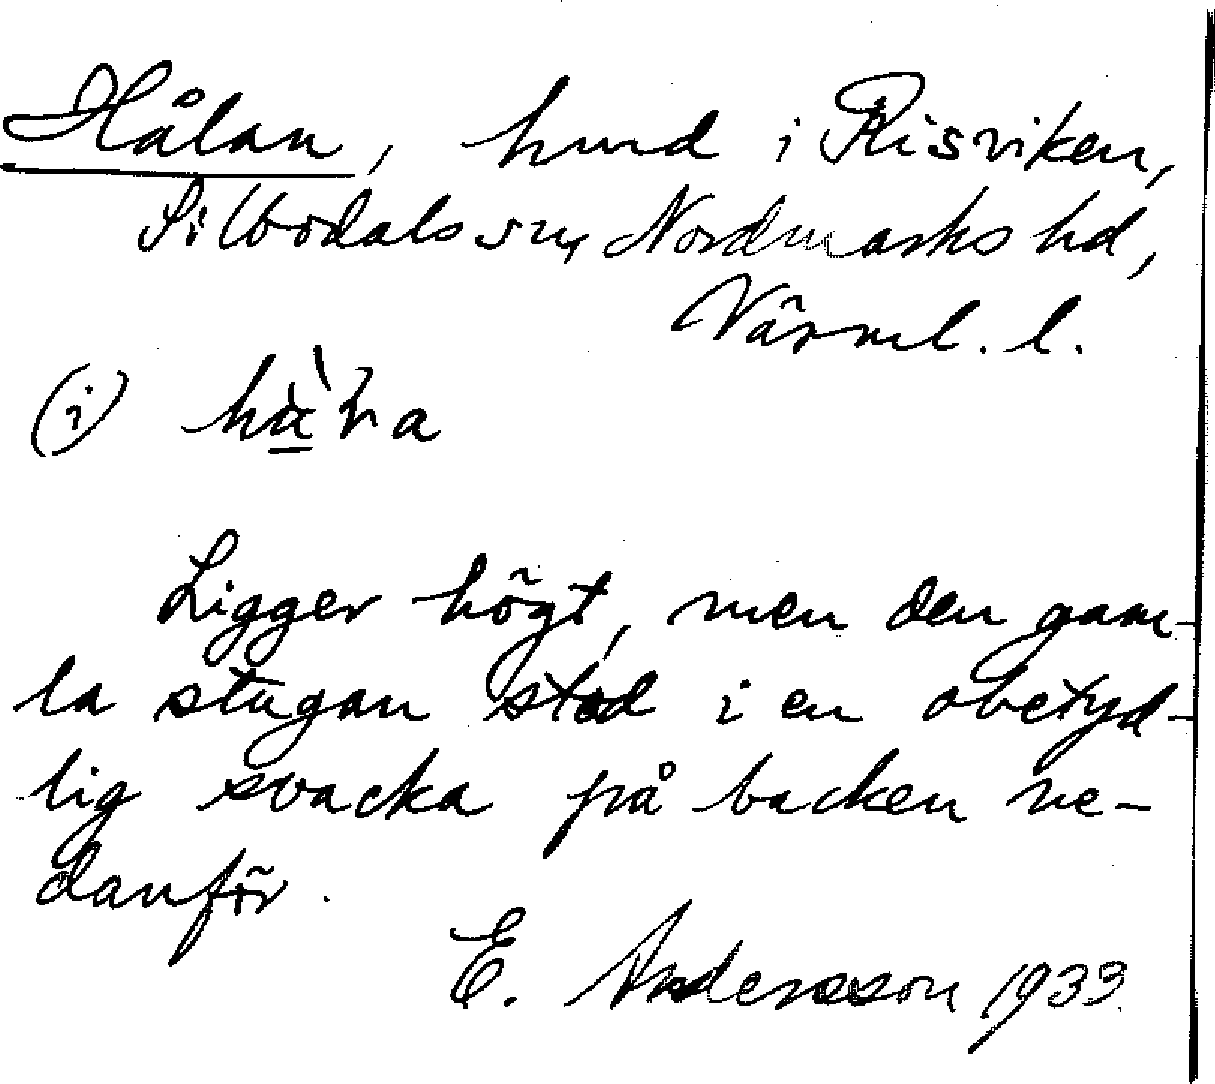 Hålan, hmd i Risviken,
Silbodals sn, Nordmarks hd,
Värml. l.
(i)
Ligger högt, men den gam-
la stugan stod i en obetyd-
lig svacka på backen ne-
danför.
E. Andersson 1933